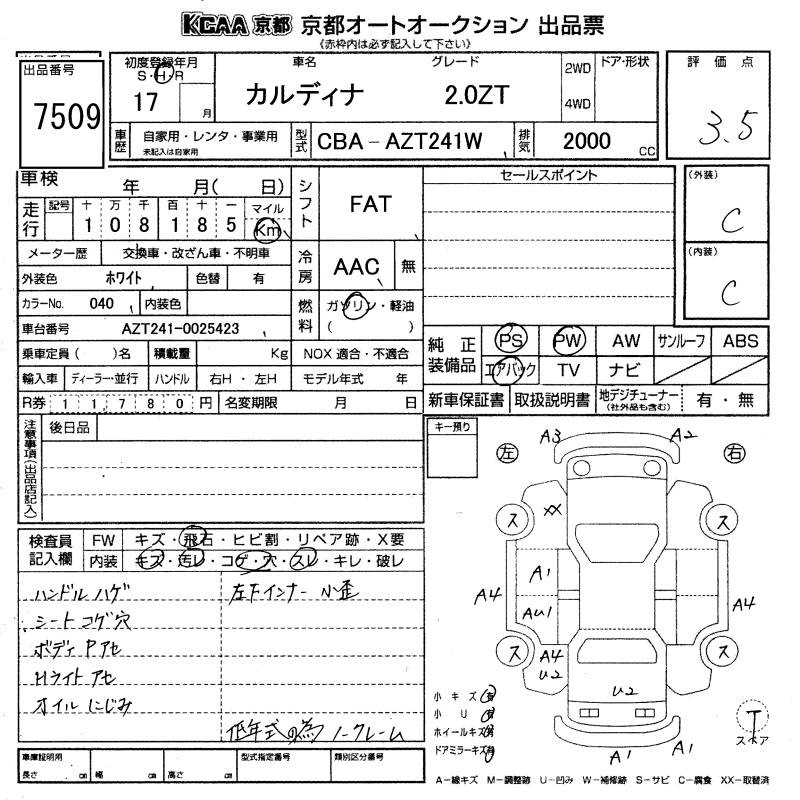 KCAA 京都 京都オートオークション 出品票
《赤枠内は必ず記入して下さい》
出品番号
7509
初度登録年月
S・H・R
17 月
車名
カルディナ
グレード
2.0ZT
2WD
4WD
ドア・形状
評価点
3.5
車歴
自家用・レンタ・事業用
未記入は自家用
型式
CBA-AZT241W
排気
2000 CC
車検 年 月( 日)
走行
記号 十 万 千 百 十 一 マイル
1 0 8 1 8 5 Km
シフト
FAT
セールスポイント
(外装)
C
(内装)
C
メーター歴 交換車・改ざん車・不明車
冷房
AAC 無
外装色 ホワイト 色替 有
カラーNo. 040 内装色
燃料
ガソリン・軽油
( )
車台番号 AZT241-0025423
乗車定員( )名 積載量 Kg NOX 適合・不適合
輸入車 ディーラー・並行 ハンドル 右H・左H モデル年式 年
R券 11,780円 名変期限 月 日
純正装備品
PS PW AW サンルーフ ABS
エアバック TV ナビ
新車保証書 取扱説明書 地デジチューナー(社外品も含む) 有・無
注意事項(出品店記入)
後日品
キー預り
検査員記入欄
FW キズ・飛石・ヒビ割・リペア跡・X要
内装 キズ・汚レ・コゲ・穴・スレ・キレ・破レ
ハンドル ハゲ
左Fインナー 小歪
シート コゲ穴
ボディ Pアセ
Hライト アセ
オイル にじみ
低年式の為 ノークレーム
左 A3 A2 右
ス XX ス
A1
A4 AU1 A4
ス A4 ス
U2
U2
小キズ 有
小U 有
ホイールキズ 有
ドアミラーキズ 有
A1 A1
T
スペア
車庫証明用
長さ cm 幅 cm 高さ cm
型式指定番号
類別区分番号
A-線キズ M-調整跡 U-凹み W-補修跡 S-サビ C-腐食 XX-取替済